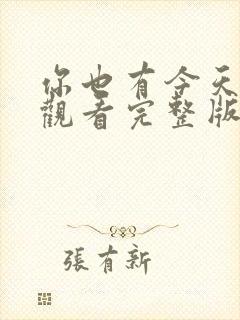 你也有今天
觀看完整版
張有新